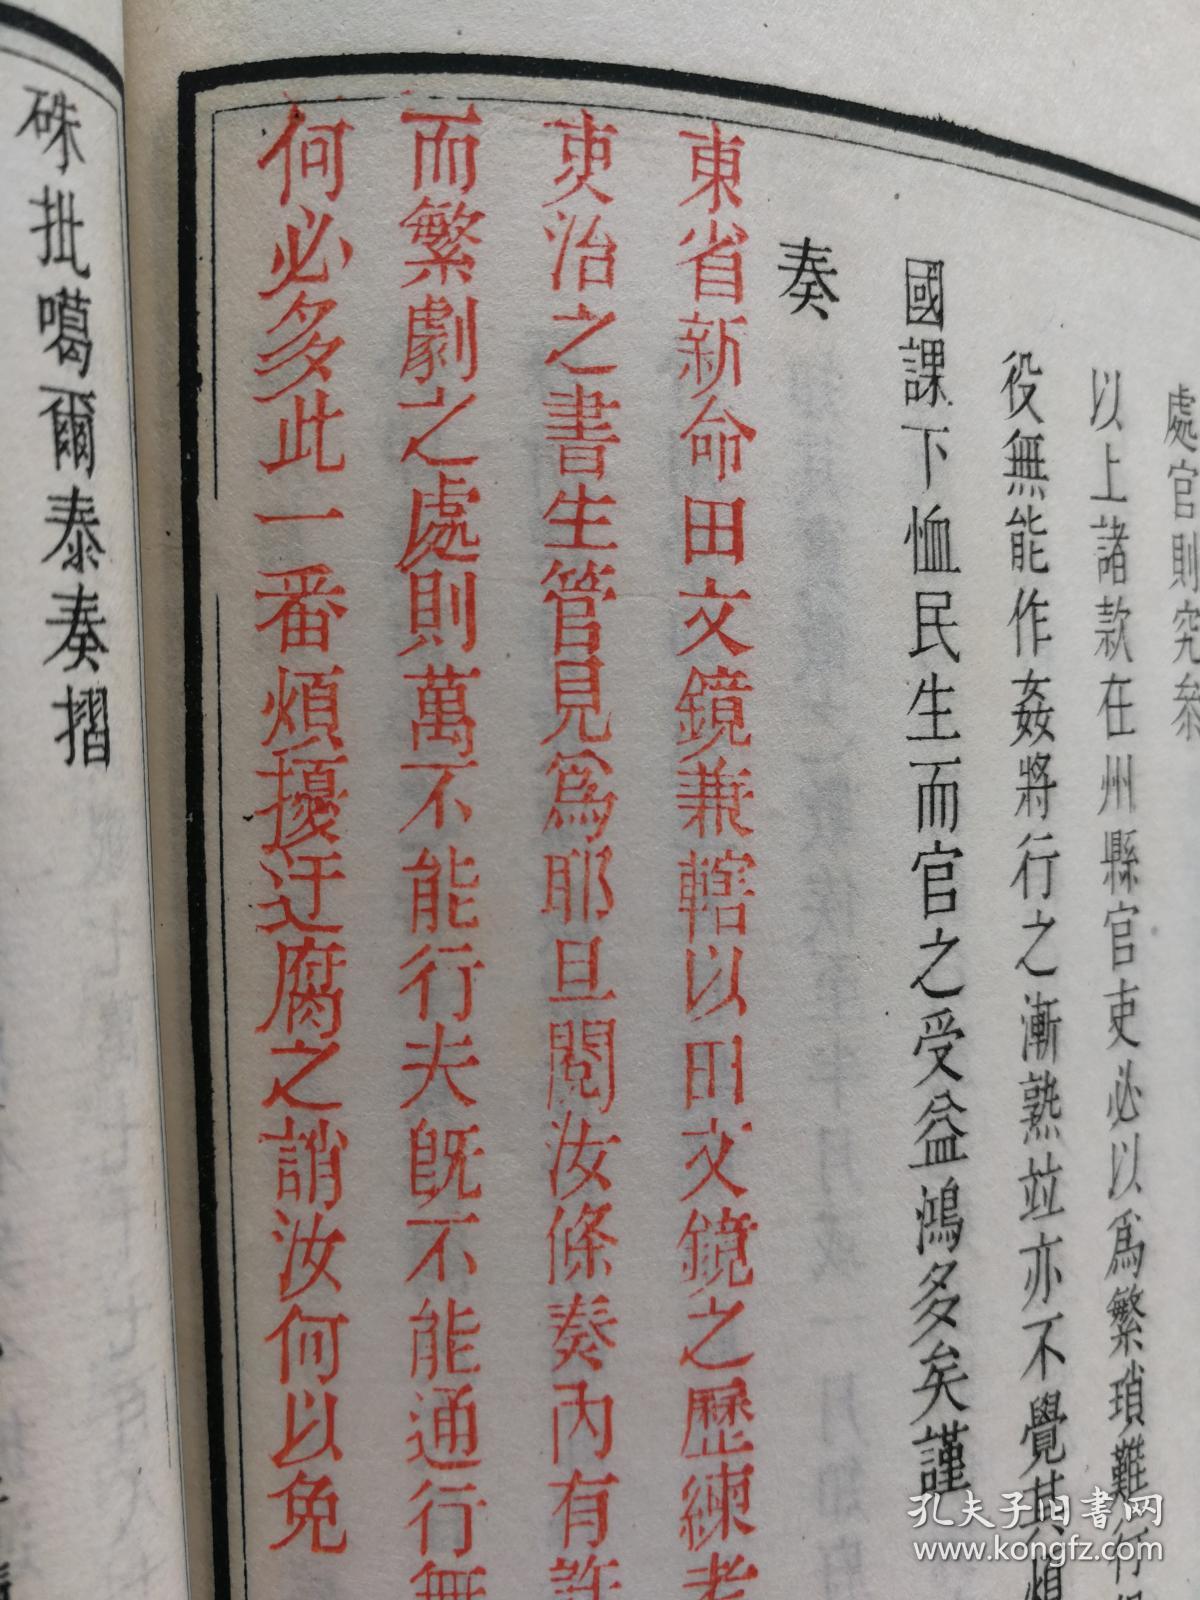 處官則究叅
以上諸款在州縣官吏必以爲繁瑣難行
役無能作姦將行之漸熟竝亦不覺其煩
國課下恤民生而官之受益鴻多矣謹
奏
東省新命田文鏡兼轄以田文鏡之歷練老
吏治之書生管見爲耶且閱汝條奏內有許
而繁劇之處則萬不能行夫旣不能通行無
何必多此一番煩擾迂腐之誚汝何以免
硃批噶爾泰奏摺
孔夫子旧书网
www.kongfz.com